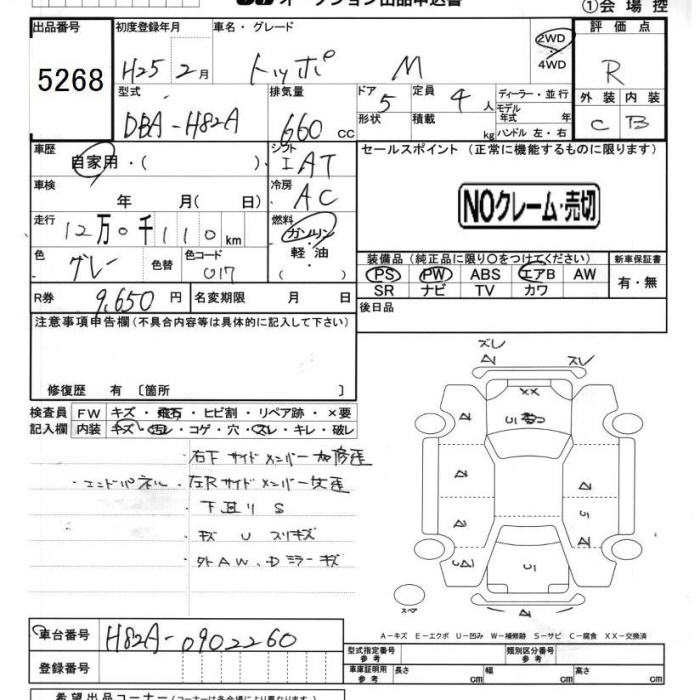 オークション出品申込書
①会場控
出品番号 初度登録年月 車名・グレード 2WD 4WD 評価点
5268 H25 2月 トッポ M R
型式 排気量 ドア 定員 ディーラー・並行 外装 内装
DBA-H82A 660cc 5 4人 モデル年式 年 C B
形状 積載 kg ハンドル 左・右
車歴 自家用・( ) シフト IAT セールスポイント (正常に機能するものに限ります)
車検 年 月( 日) 冷房 AC NOクレーム・売切
走行 12万0千110km 燃料 ガソリン 軽油 ( )
色 グレー 色替 色コード U17 装備品(純正品に限り○をつけてください) 新車保証書
PS PW ABS エアB AW 有・無
SR ナビ TV カワ
R券 9,650円 名変期限 月 日 後日品
注意事項申告欄(不具合内容等は具体的に記入して下さい)
修復歴 有 〔箇所 〕
検査員 FW キズ・飛石・ヒビ割・リペア跡・×要
記入欄 内装 キズ・汚レ・コゲ・穴・スレ・キレ・破レ
右F サイドメンバー 修歪
・エンドパネル、左Rサイドメンバー 歪
下廻り S
キズ U スリキズ
外AW、Dミラーキズ
ズレ
A
スレ
XX
A
A
A
A
A
A
U
A
スペア
A-キズ E-エクボ U-凹み W-補修跡 S-サビ C-腐食 XX-交換済
車台番号 H82A-0902260
登録番号
型式指定番号 参考 類別区分番号 参考
車庫証明用 参考 長さ cm 幅 cm 高さ cm
希望出品コーナー(コーナーは各会場により異なります)